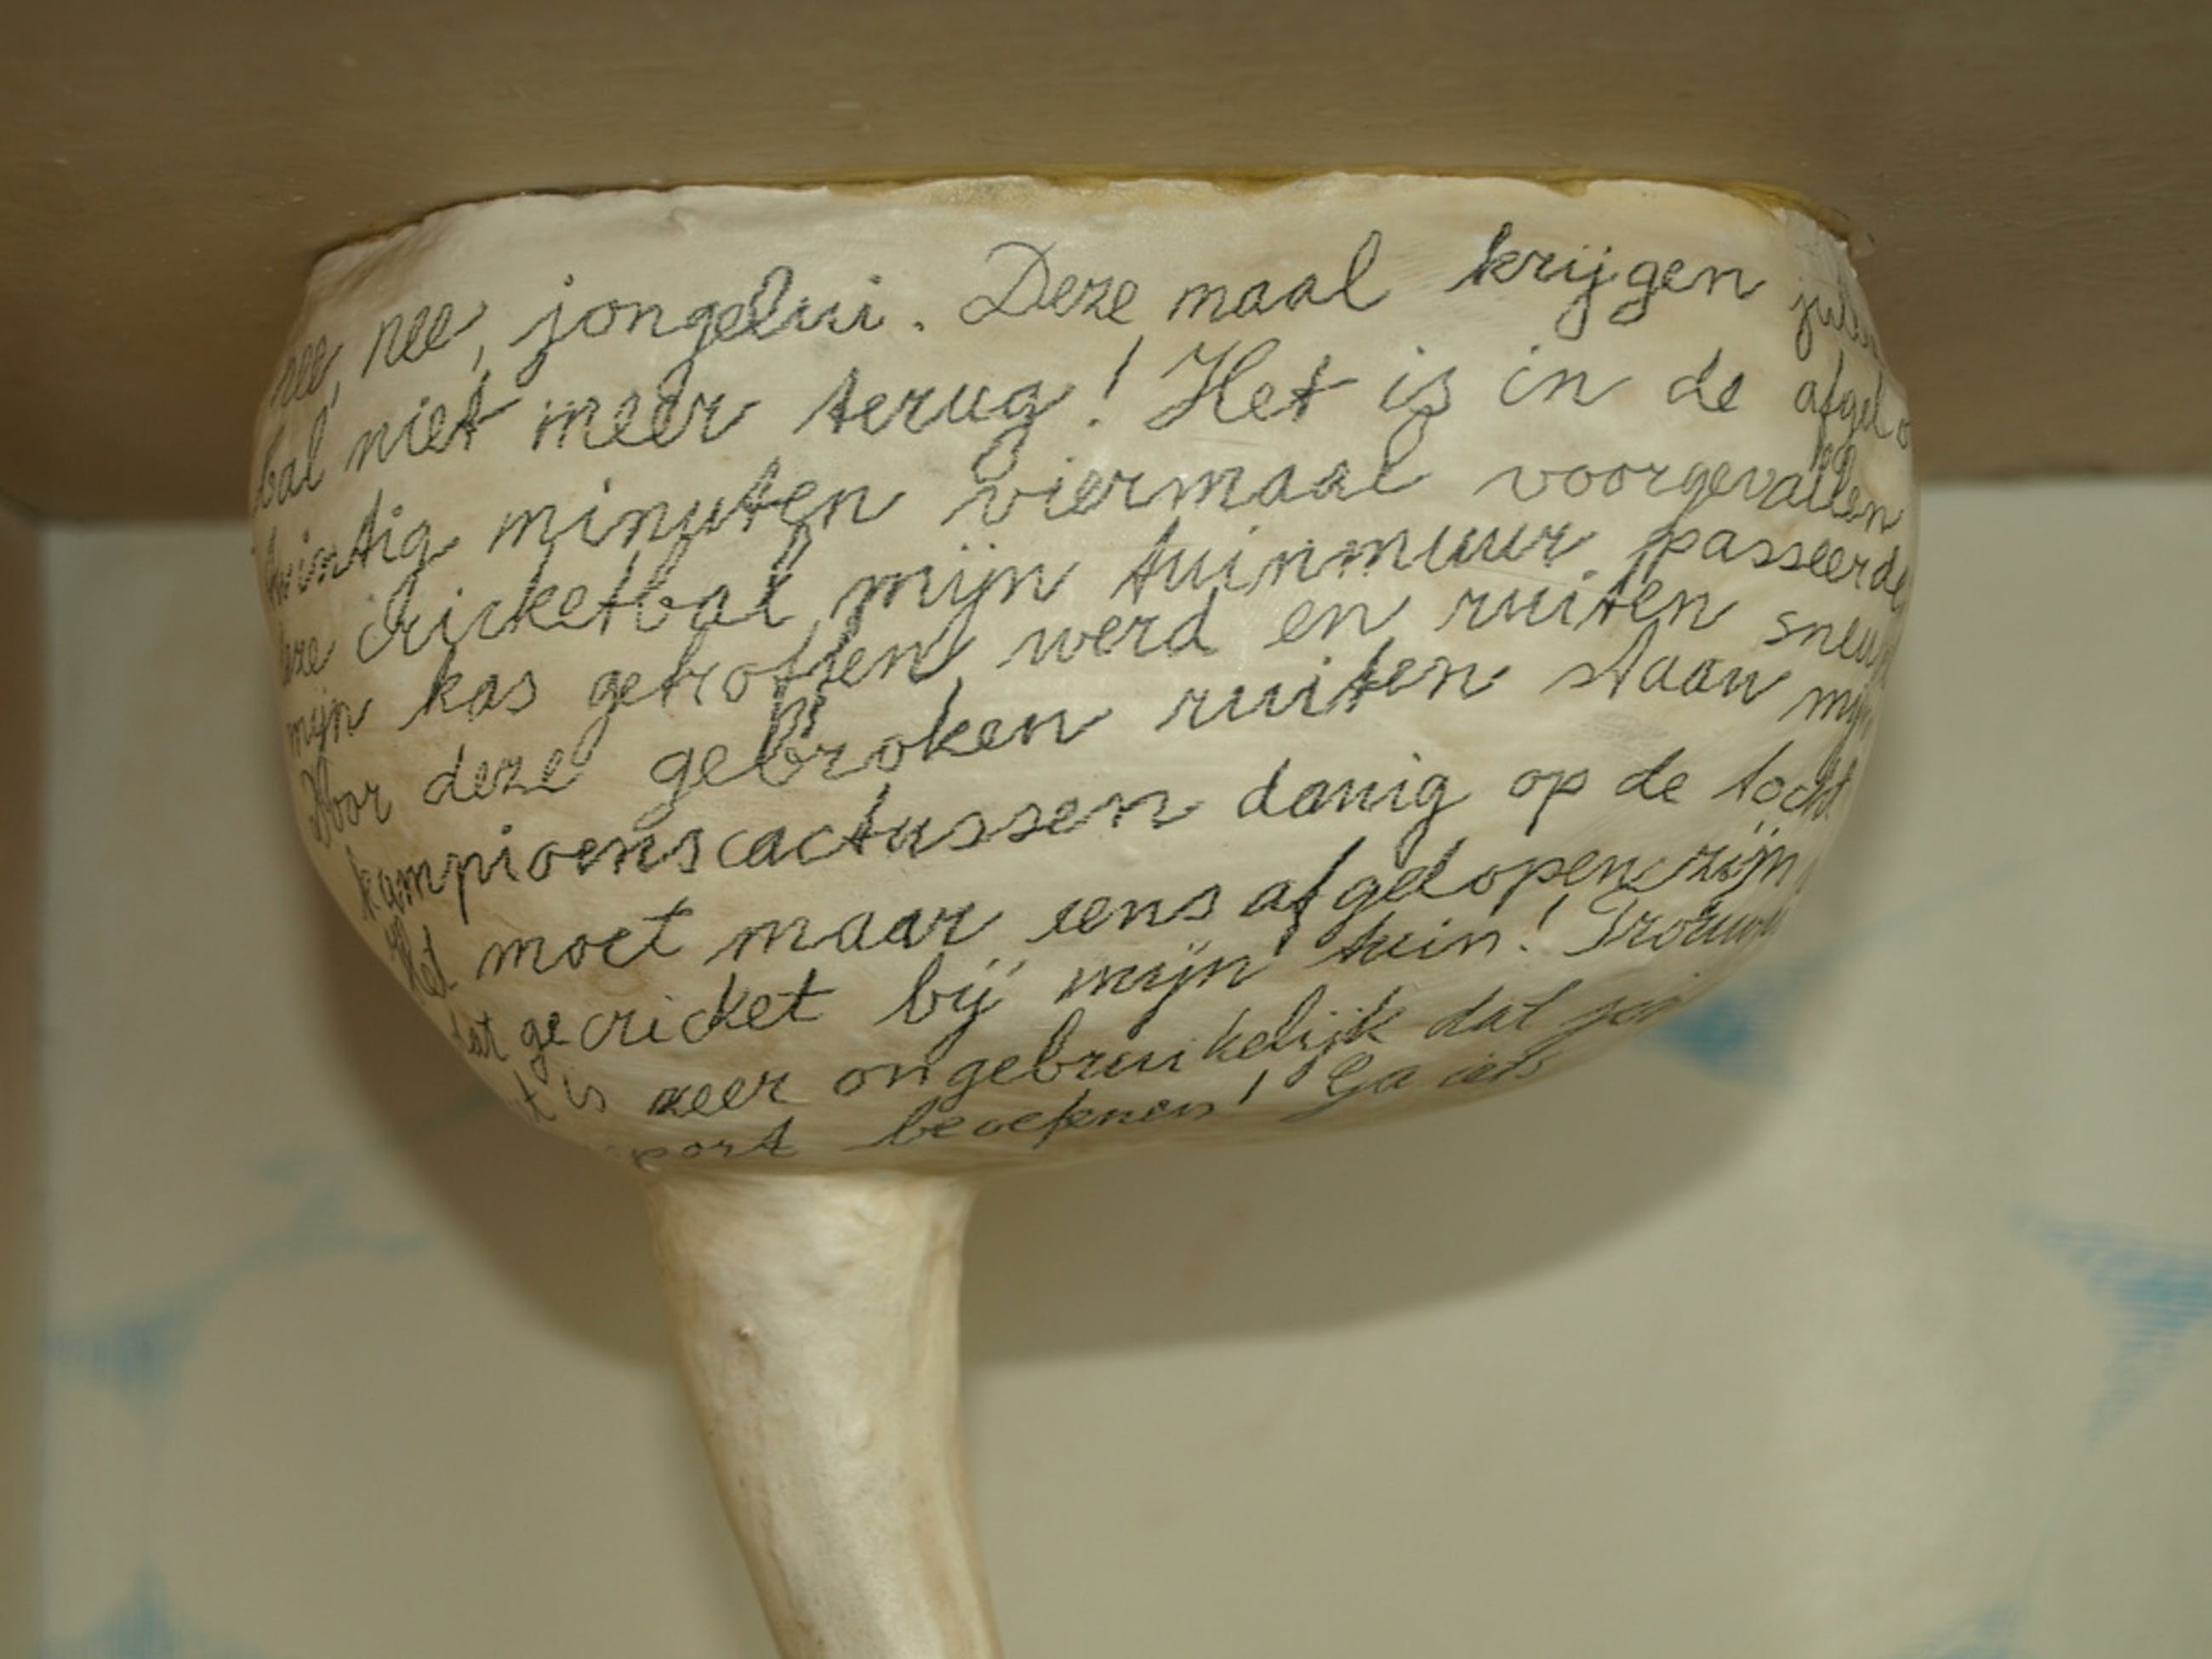 nee, nee, jongelui. Deze maal krijgen
bal niet meer terug! Het is in de
twintig minuten viermaal voorgevallen
deze cricketbal mijn tuinmuur passeerde
mijn kas getroffen werd en ruiten
Door deze gebroken ruiten staan
kampioenscactussen danig op de tocht
Het moet maar eens afgelopen zijn
dat gecricket bij mijn tuin!
is zeer ongebruikelijk dat
sport beoefenen! Ga iets